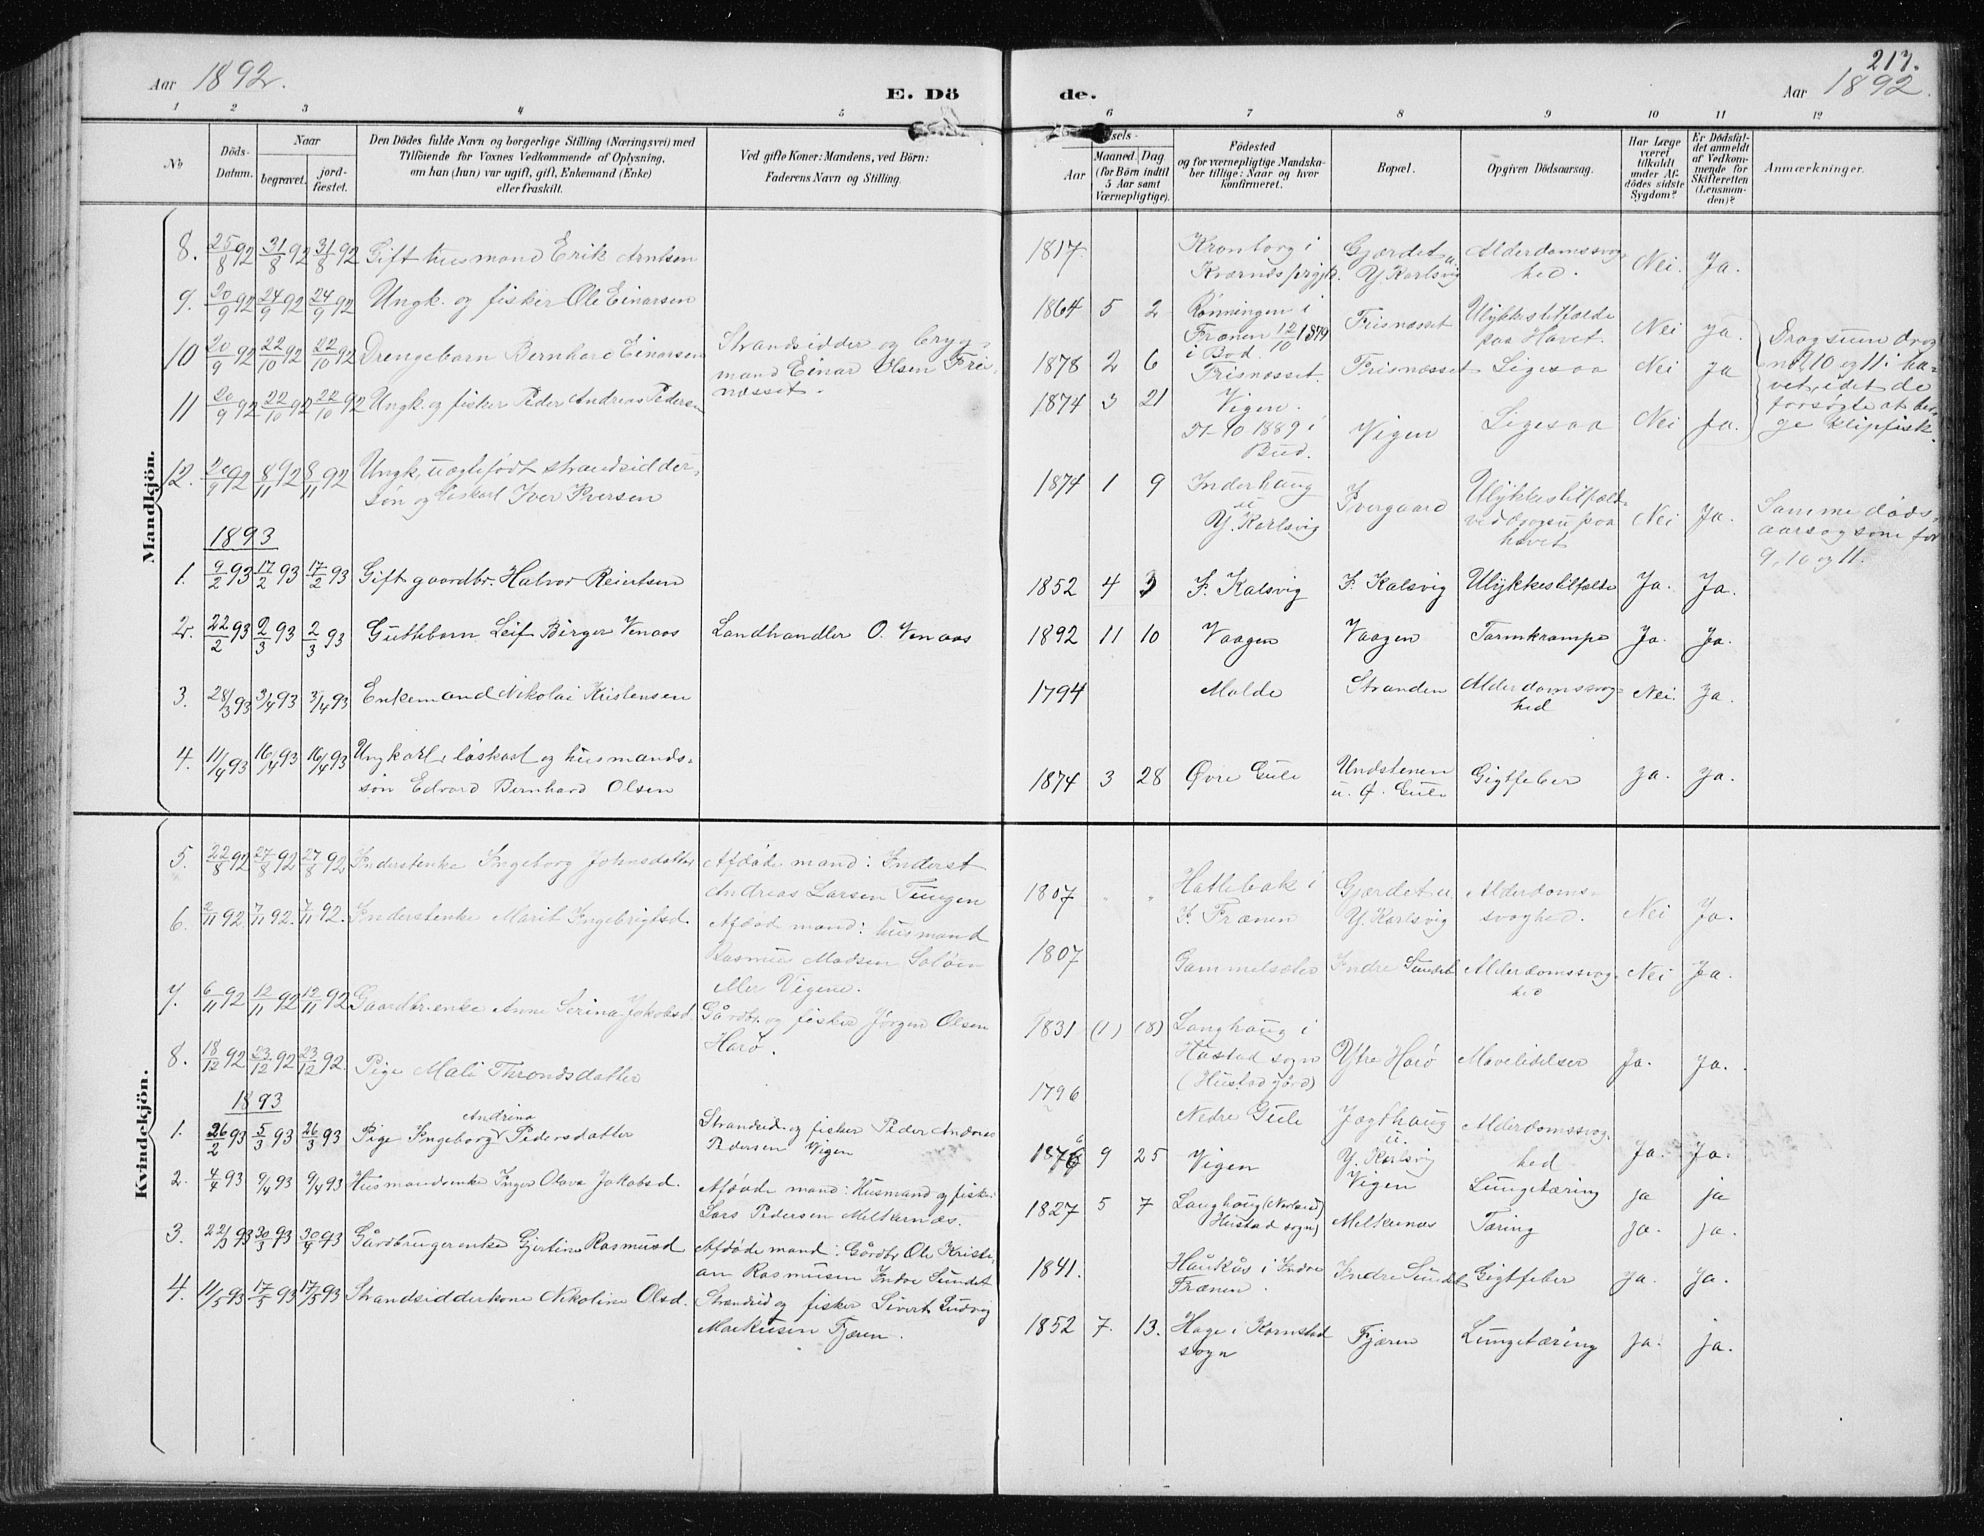 217.
Aar 1892. E. Dö de. Aar 1892.
1 2 3 4 5 6 7 8 9 10 11 12
No
Döds-Datum.
Naar
begravet.
jord-fæstet.
Den Dödes fulde Navn og borgerlige Stilling (Næringsvei) med
Tilföiende for Voxnes Vedkommende af Oplysning,
om han (hun) var ugift, gift, Enkemand (Enke)
eller fraskilt.
Ved gifte Koner: Mandens, ved Börn:
Faderens Navn og Stilling.
Aar
Maaned. Dag
(for Börn indtil
5 Aar samt
Værnepligtige).
Födested
og for værnepligtige Mandska-
ber tillige: Naar og hvor
konfirmeret.
Bopæl.
Opgiven Dödsaarsag.
Har Læge
været
tilkaldt
under Af-
dödes sidste
Sygdom?
Er Dödsfal-
det anmeldt
af Vedkom-
mende for
Skifteretten
(Lensman-
den)?
Anmærkninger.
Mandkjön.
8. 25/8 92 31/8 92 31/8 92 Gift husmand Erik Arntsen 1817. Kronborg i Gjærdet u. Alderdomssvag-
Kværnesprgjk. Y. Karlsvig hed. Nei. Ja.
9. 20/9 92 24/9 92 24/9 92 Ungk. og fisker Ole Einarsen 1864 5 2 Rønningen i Frisnæsset Ulykkestilfælde
Frænen 12/10 1879 paa Havet. Nei Ja.
i Bod.
10 20/9 92 22/10 92 22/10 92 Drengebarn Bernhard Einarsen Strandsidder og bryg-
mand Einar Olsen Fris-
næsset. 1878 2 6 Frisnæsset. Frisnæsset Ligesaa Nei Ja
11 20/9 92 22/10 92 22/10 92 Ungk. og fisker Peder Andreas Pedersen 1874 3 21 Vigen. Vigen Ligesaa Nei Ja.
1889 i
Bud.
Dragsuen drog
no 9, 10 og 11 i ha-
vet, idet de
forsøgte at ber-
ge klipfisk.
12. 20/9 92 8/11 92 8/11 92 Ungk, uægtefødt strandsidder-
søn og løskarl Iver Iversen 1874 1 9 Inderhaug Ivergaard Ulykkestilfæld
u ved dragsu paa Nei Ja.
Y. Karlsvig havet
Samme døds-
aarsag som for
9, 10 og 11.
1893
1. 9/2 93 17/2 93 17/2 93 Gift gaardbr. Halvor Reiertsen 1852 4 3 I. Kalsvig I. Kalsvig Ulykkestilfælde Ja. Ja.
2. 22/2 93 2/3 93 2/3 93 Guttebarn Leif Birger Venaas Landhandler O. Venaas 1892 11 10 Vaagen Vaagen Tarmkrampe Ja. Ja.
3. 28/3 93 3/4 93 3/4 93 Enkemand Nikolai Kristensen 1794 Molde Stranden Alderdomssvag-
hed Nei. Ja.
4. 11/4 93 16/4 93 16/4 93 Ungkarl, løskarl og husmands-
søn Edvard Bernhard Olsen 1874 3 28 Øvre Gule Undstenen Gigtfeber Ja. Ja.
u. Ø. Gule
Kvindekjön.
5. 22/8 92 27/8 92 27/8 92 Inderstenke Ingeborg Johnsdatter Afdøde mand: Inderst
Andreas Larsen Tungen 1807 " " Hatlebak i Gjærdet u. Alderdoms-
I. Frænen Y. Karlsvig svaghed. Nei Ja.
6. 2/11 92 7/11 92. 7/11 92. Inderstenke Marit Ingebrigtsd. Afdød mand: husmand
Rasmus Madsen
eller Vigene. 1807 Gammelsæter Indre Sundet Alderdomssvag- Nei Ja.
hed
7. 6/11 92 12/11 92 12/11 92 Gaardbr.enke Anne Serina Jakobsd. Gårdbr. og fisker Jørgen Olsen
Harø. 1831 (1) (8) Langhaug i
Hustad sogn Ytre Harø Mavelidelser Ja. Ja.
(Hustad gård)
8. 18/12 92 23/12 92 23/12 92. Pige Mali Throndsdatter 1796 Nedre Gule Jægthaug Alderdomssvag-
u. hed Ja. Ja.
Y. Karlsvig
1893
1. 26/2 93 5/3 93 26/3 93 Pige Ingeborg Andrina Pedersdatter Strandsid. og fisker Peder Andreas
Pedersen Vigen 1876 9 25 Vigen Vigen Lungetæring ja ja
2. 4/4 93 9/4 93 9/4 93 Husmandsenke Inger Olava Jakobsd. Afdøde mand: Husmand og fisker
Lars Pedersen Melkernæs. 1827 5 7 Langhaug (Nerland) Melkernæs Tæring ja. ja.
Hustad sogn)
3. 22/3 93 30/3 93 30/4 93 Gårdbrugerenke Gjertine Rasmusd Afdøde mand: Gårdbr. Ole Kristi-
an Rasmusen Indre Sundet 1841. Haukås i Indre Indre Sundet Gigtfeber ja. Ja.
Frænen.
4. 11/5 93 17/5 93 17/5 93 Strandsidderkone Nikoline Olsd. Strandsid og fisker Sivert Ludvig
Markusen Fjæren. 1852 7. 13. Hage i Kornstad Fjæren Lungetæring ja. ja.
sogn